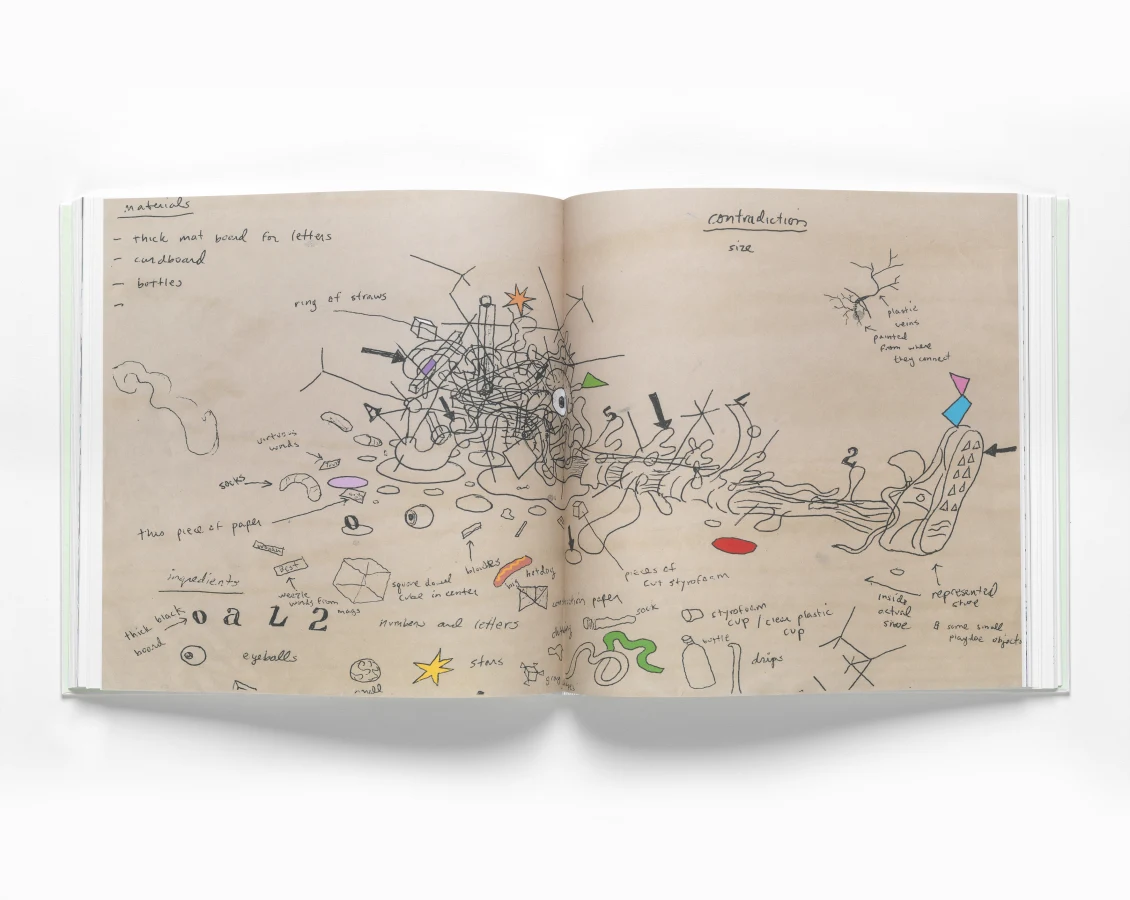 materials
- thick mat board for letters
- cardboard
- bottles
-
ring of straws
virtuous
words
socks
this piece of paper
ingredients
weezle
words from
mags
square dowel
cube in center
big
hotdog
thick black
board
o a L 2
numbers and letters
eyeballs
stars
small
contradiction
size
plastic
veins
painted
from where
they connect
A
5
2
o
pieces of
cut styrofoam
construction paper
sock
styrofoam
cup / clear plastic
cup
bottle
drips
inside
actual
shoe
represented
shoe
8 some small
playdoe objects